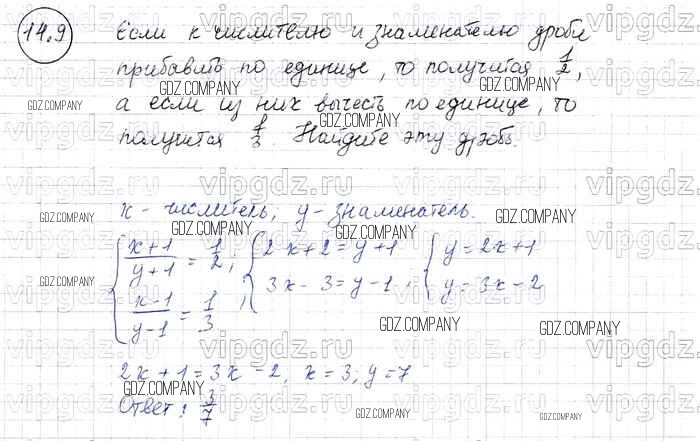 14.9 Если к числителю и знаменателю дроби
прибавить по единице, то получится 1/2,
а если из них вычесть по единице, то
получится 1/3. Найдите эту дробь.
x - числитель, y - знаменатель.
{ (x+1)/(y+1) = 1/2; { 2x+2=y+1 { y=2x+1
{ (x-1)/(y-1) = 1/3 ; { 3x-3=y-1; { y=3x-2
2x+1=3x-2, x=3; y=7
Ответ: 3/7
vipgdz.ru
GDZ.COMPANY